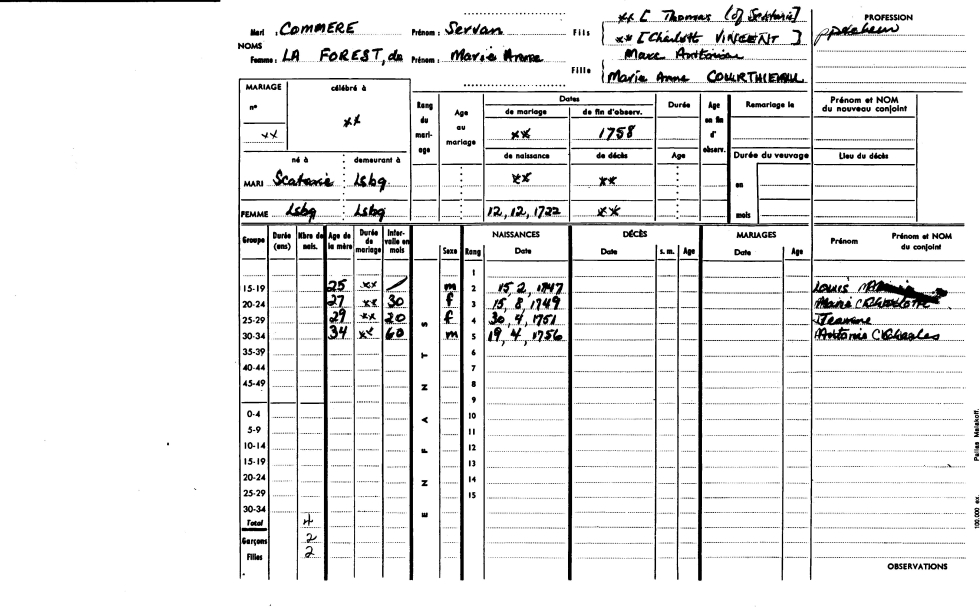 ** [ Thomas (of Scatarie]
PROFESSION
Mari : COMMERE Prénom : Servan Fils ** [Charlott VINCENT ]
NOMS
Femme : LA FOREST, de Prénom : Marie Anne Fille Marc Antoine
Marie Anne COURTHIEAU
MARIAGE célébré à Rang du mariage Age au mariage Dates Durée Age en fin d' observ. Remariage le Prénom et NOM du nouveau conjoint
n° de mariage de fin d'observ.
** ** ** 1758
né à demeurant à de naissance de décès Age Durée du veuvage Lieu du décès
MARI Scatarie Lsbg ** ** en
FEMME Lsbg Lsbg 12, 12, 1722 ** mois
Groupe Durée (ans) Nbre de nais. Age de la mère Durée de mariage Inter-valle en mois ENFANTS Sexe Rang NAISSANCES Date DÉCÈS Date s. m. Age MARIAGES Date Age Prénom Prénom et NOM du conjoint
1
15-19 25 ** / m 2 15 2, 1747 Louis
20-24 27 ** 30 f 3 15, 8, 1749 Marie Charlotte
25-29 29 ** 20 f 4 30, 4, 1751 Jeanne
30-34 34 ** 60 m 5 19, 4, 1756 Antoine Charles
35-39 6
40-44 7
45-49 8
9
0-4 10
5-9 11
10-14 12
15-19 13
20-24 14
25-29 15
30-34
Total 4
Garçons 2
Filles 2
OBSERVATIONS
100.000 ex. Parlies Malakoff.